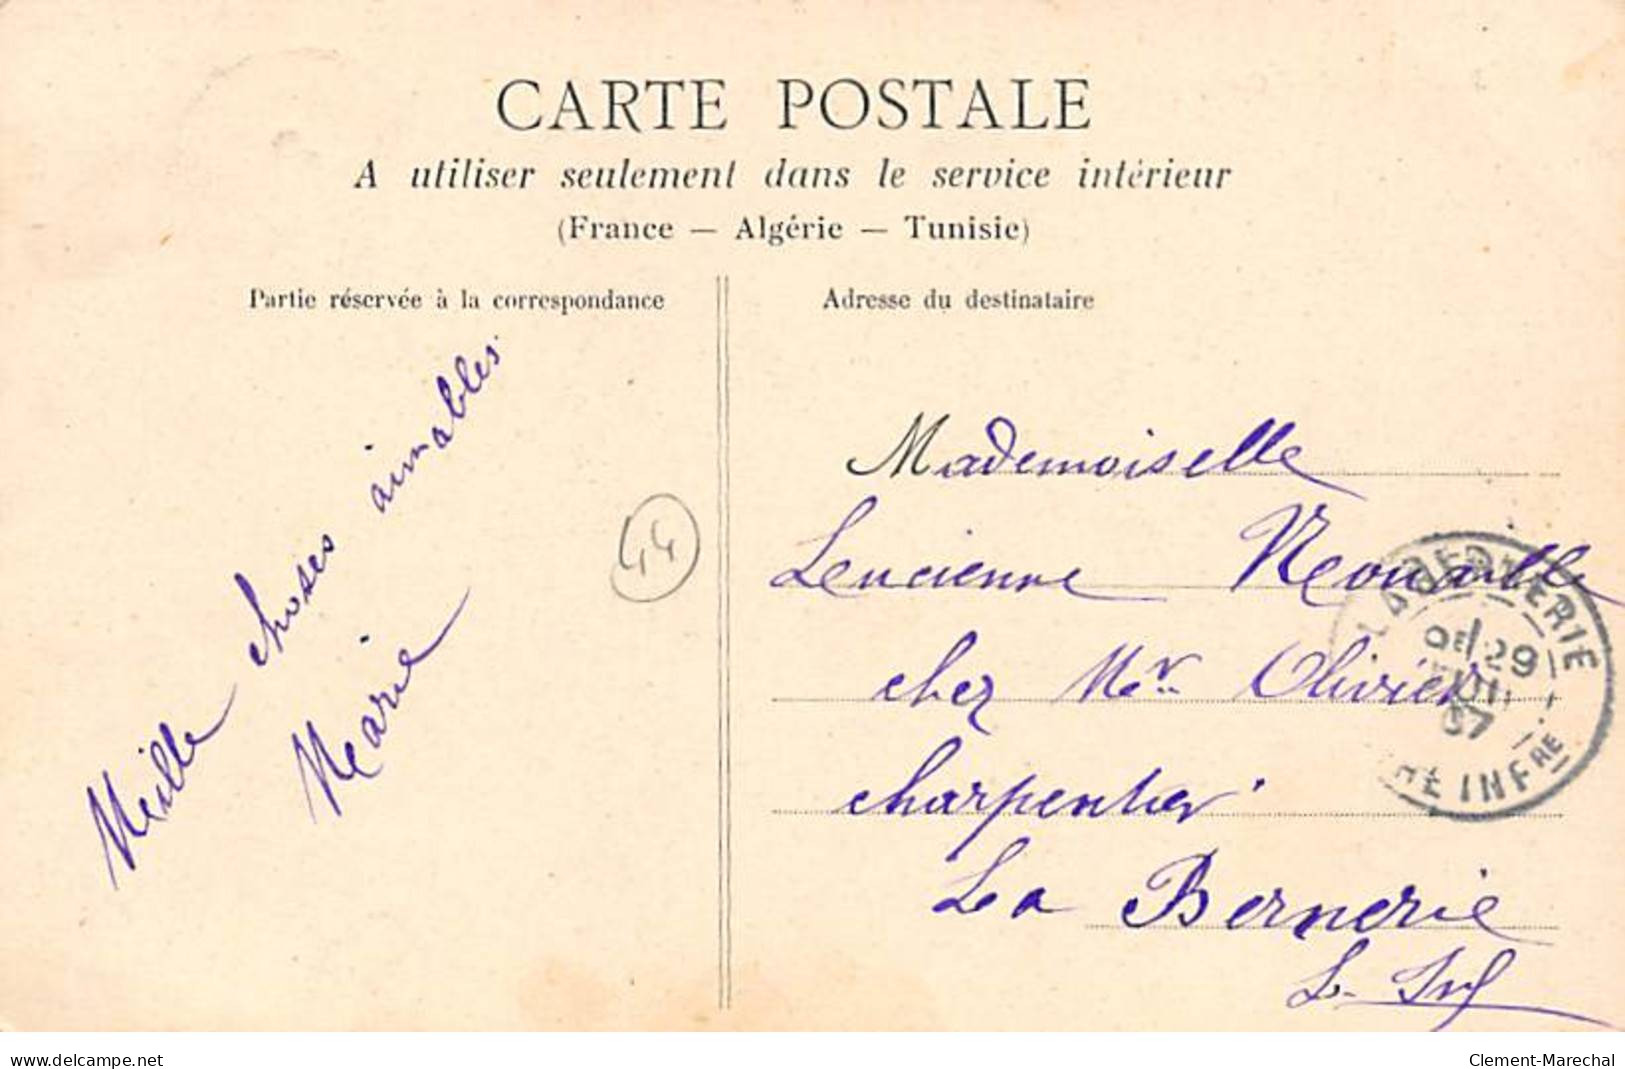 CARTE POSTALE
A utiliser seulement dans le service intérieur
(France — Algérie — Tunisie)
Partie réservée à la correspondance
Adresse du destinataire
Mille choses aimables
Marie
44
Mademoiselle
Lucienne
chez Mr. Olivier
charpentier
La Bernerie
L- Inf
LA BERNERIE
29
07
RE INFRE
www.delcampe.net
Clement-Marechal